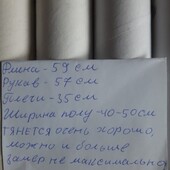 Длина - 59 см
Рукав - 57 см
Плечи - 35 см
Ширина полу -40-50см
тянется очень хорошо,
можно и больше
замер не максимальная